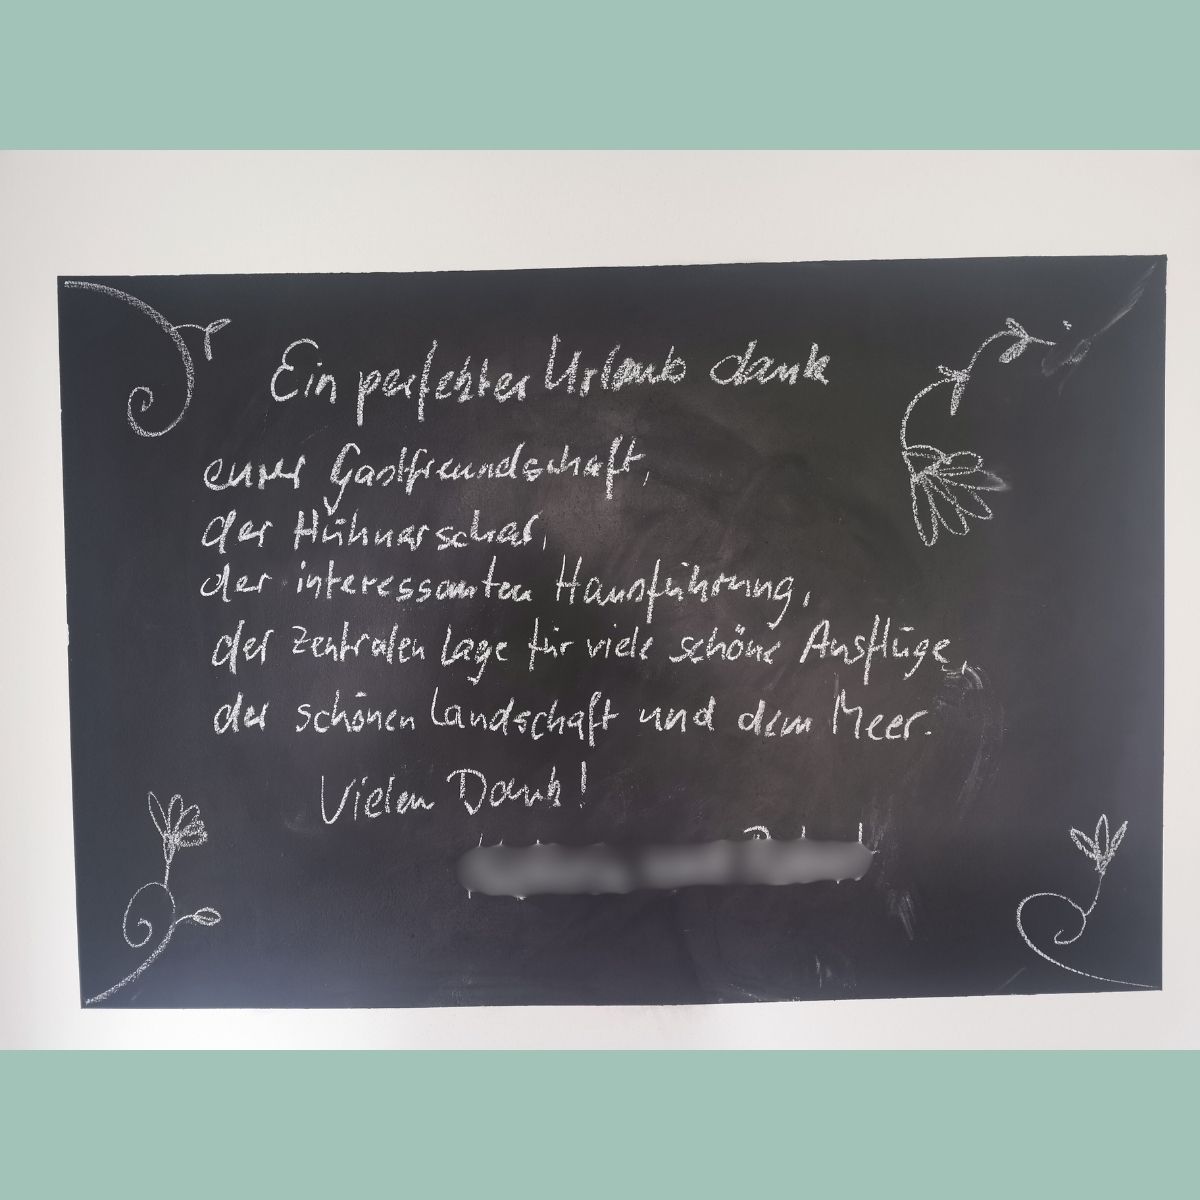 Ein perfekter Urlaub dank
eurer Gastfreundschaft,
der Hühnerschar,
der interessanten Hausführung,
der zentralen Lage für viele schöne Ausflüge,
der schönen Landschaft und dem Meer.
Vielen Dank!